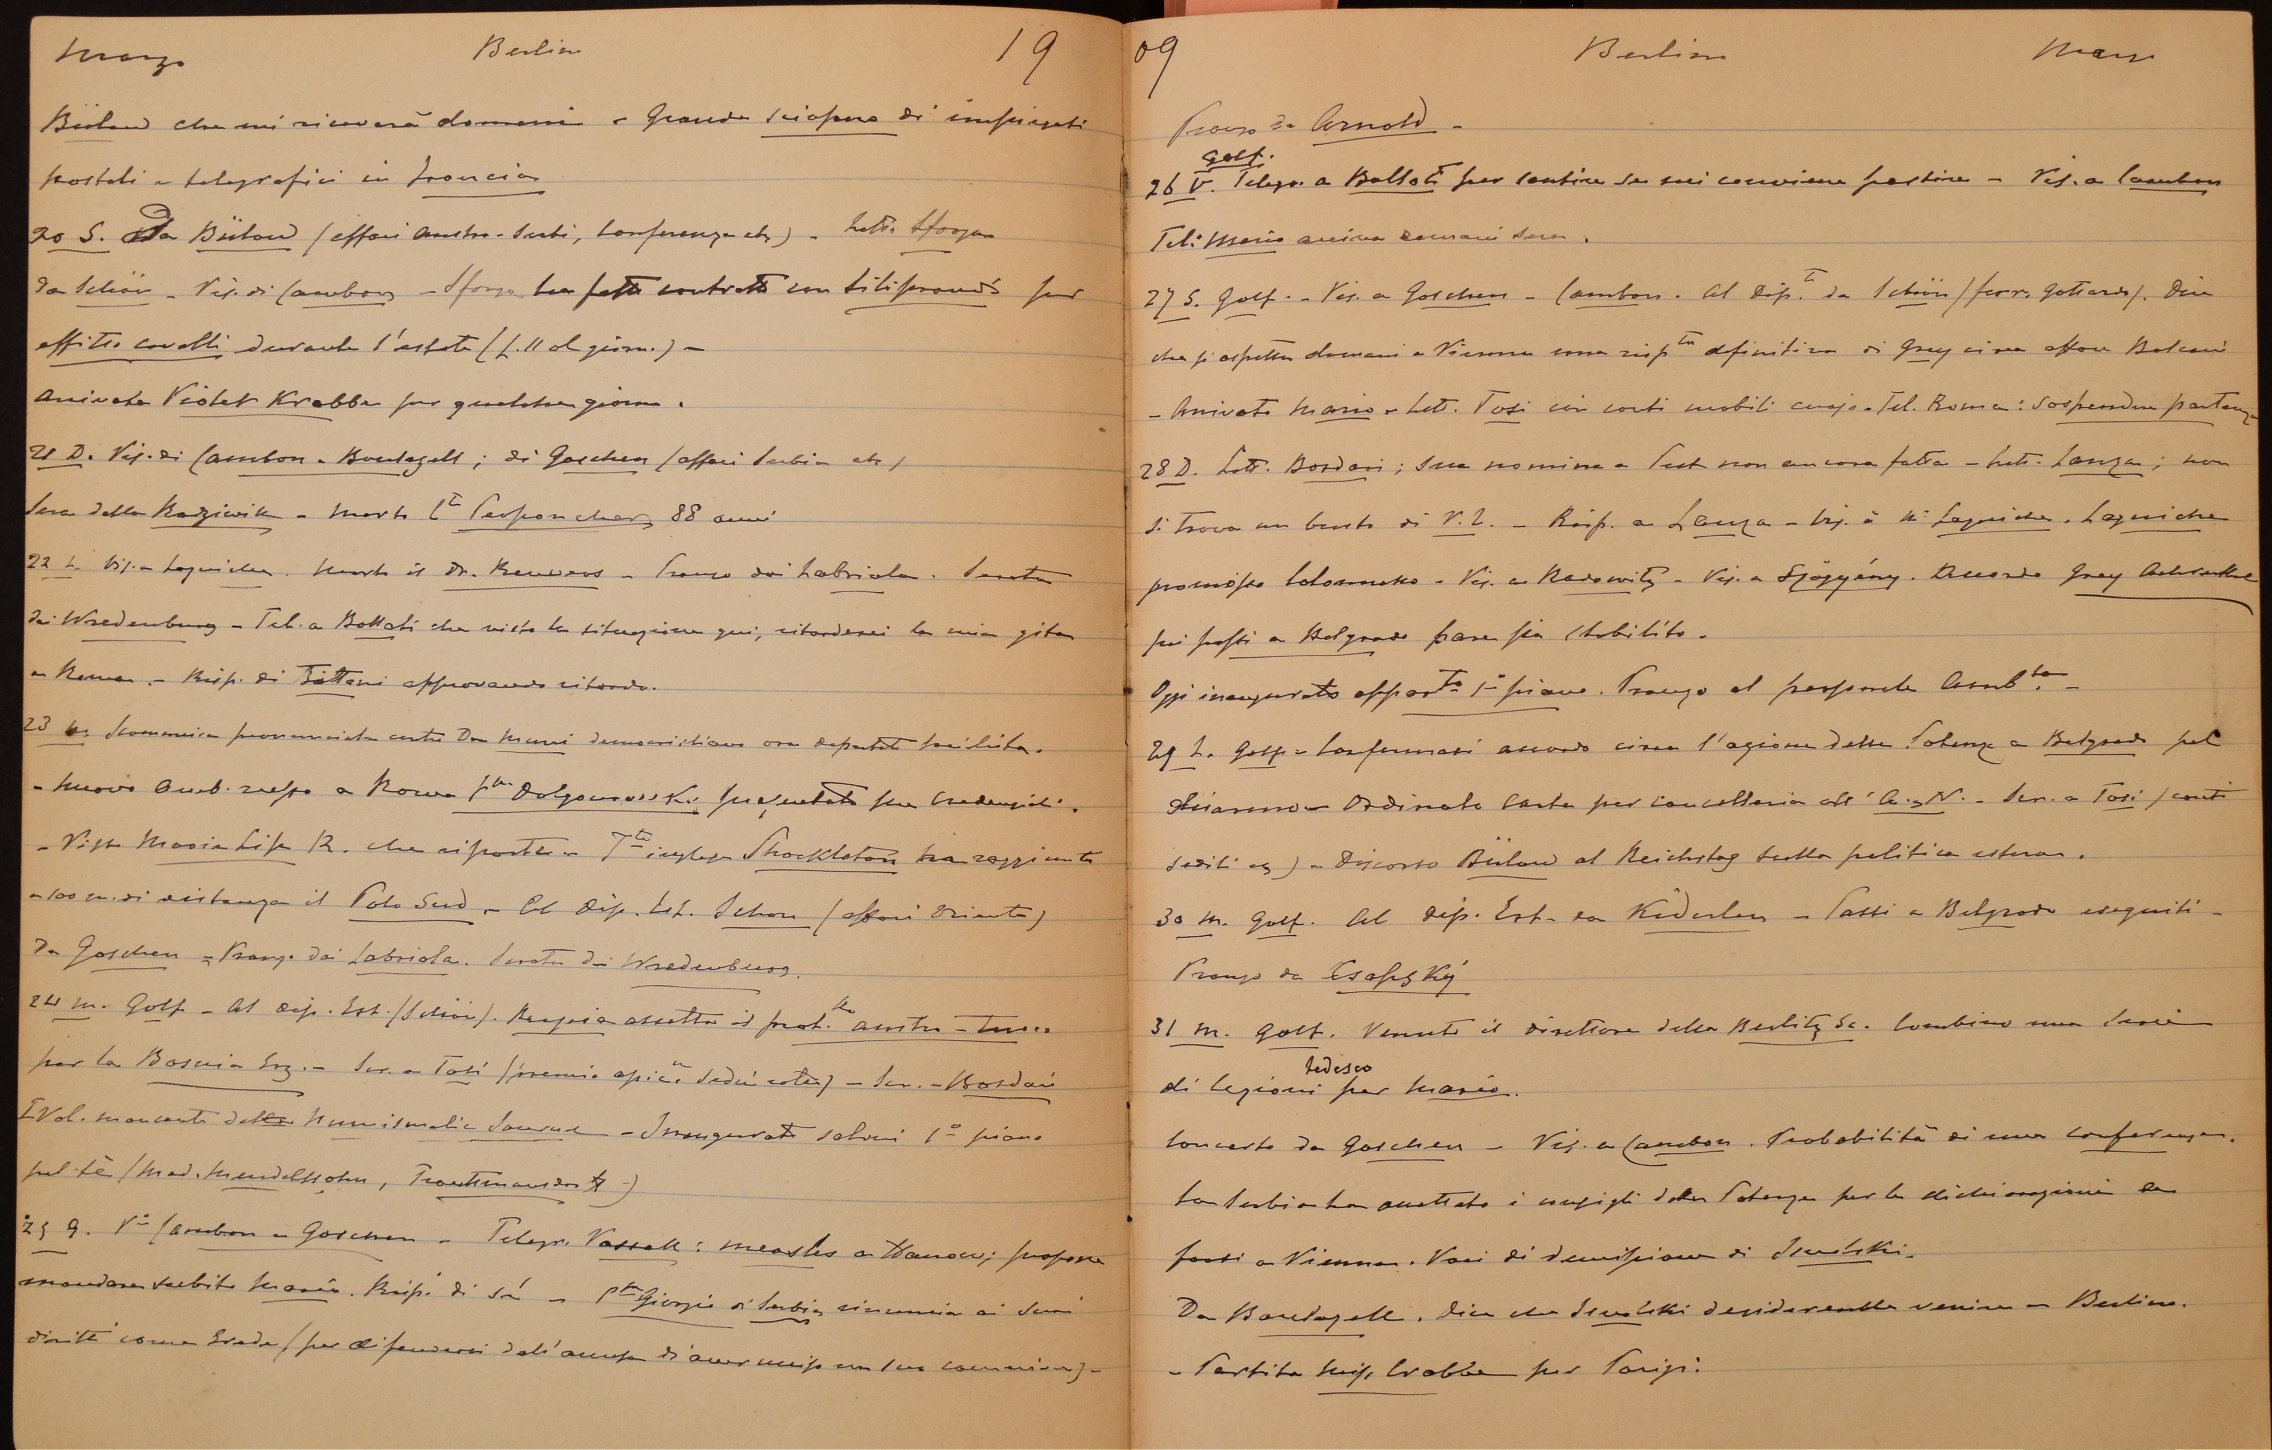 Marzo Berlino 19
Bülow che mi riceverà domani - Grande sciopero di impiegati
postali e telegrafici in Francia
20 S. Da Bülow (affari austro-serbi, conferenza etc) - Lett. Sforza
da Schön - Vis. di Cambon - Sforza ha fatto contratto con per
affitto cavalli durante l'estate (f. 11 al giorn.) -
Arrivata Violet Krabbe per qualche giorno.
21 D. Vis. di Cambon - ; di Goschen (affari Serbia etc)
Sera dalla Radziwill - Morto Cte Perponcher, 88 anni
22 L. Vis. a Laguiche. Morto il Dr. Renvers - Pranzo dai Labriola. Serata
dai Wredenburg - Tel. a Bollati che visto la situazione qui, ritarderei la mia gita
a Roma. - Risp. di Tittoni approvando ritardo.
23 M. Scomunica pronunciata contro Don Murri democristiano ora deputato
- Nuovo Amb. russo a Roma Ppe Dolgorouki presentato sue credenziali.
- Vista Maria Lisa R. che riparte - Tte inglese Shackleton ha raggiunto
a 100 m. di distanza il Polo Sud - Al Dip. Est. Schön (affari Oriente)
Da Goschen - Pranzo dai Labriola. Serata dai Wredenburg.
24 M. Golf - Al Dip. Est. (Schön). Russia accetta il prot.llo austro-turco
per la Bosnia Erz. - Scr. a Tosi - Scr. a Bordari
I Vol. mancante della Numismatic Journal - Inaugurato saloni 1º piano
pel tè (Mad. Mendelssohn, Trautmansdorff -)
25 G. Va Cambon e Goschen - Telegr. Vassall: measles a Harrow; propone
mandare subito Mario. Risp. di sì - Ppe Giorgio di Serbia rinuncia ai suoi
diritti come Erede (per difendersi dall'accusa d'aver ucciso un suo cameriere) -
09 Berlino Marzo
Pranzo da Arnold -
Golf.
26 V. Telegr. a Bollati per sentire se mi conviene partire - Vis. a Cambon
Tel. Mario arriva domani sera.
27 S. Golf. - Vis. a Goschen - Cambon. Al Dip.to da Schön (ferr. Gottardo). Dice
che si aspetta domani a Vienna una risp.ta definitiva di Grey circa affare Balcani
- Arrivato Mario - Lett. Tosi con conti mobili - Tel. Roma: Sospendere partenza
28 D. Lett. Bordari; sua nomina a Pest non ancora fatta - Lett. Lanza; non
si trova un busto di V. E. - Risp. a Lanza - Vis. à Mr Laguiche. Laguiche
promosso Colonnello - Vis. a Radowitz - Vis. a Szögyény. Accordo Grey Aehrenthal
pei passi a Belgrado pare sia stabilito.
Oggi inaugurato appar.to 1º piano. Pranzo al personale Amb.ta -
29 L. Golf - Confermasi accordo circa l'azione delle Potenze a Belgrado pel
disarmo - Ordinato carta per cancelleria all'A. & N. - Scr. a Tosi (conti
sedili etc) - Discorso Bülow al Reichstag sulla politica estera.
30 M. Golf. Al Dip. Est. da Kiderlen - Passi a Belgrado eseguiti -
Pranzo da Csapsky
31 M. Golf. Venuto il direttore della Berlitz Sc. Combino una serie
tedesco
di lezioni per Mario.
Concerto da Goschen - Vis. a Cambon. Probabilità di una conferenza.
La Serbia ha accettato i consigli delle Potenze per la dichiarazione da
farsi a Vienna. Voci di dimissione di Iswolski.
Da . Dice che Iswolski desiderebbe venire a Berlino.
- Partita Miss Crabbe per Parigi.